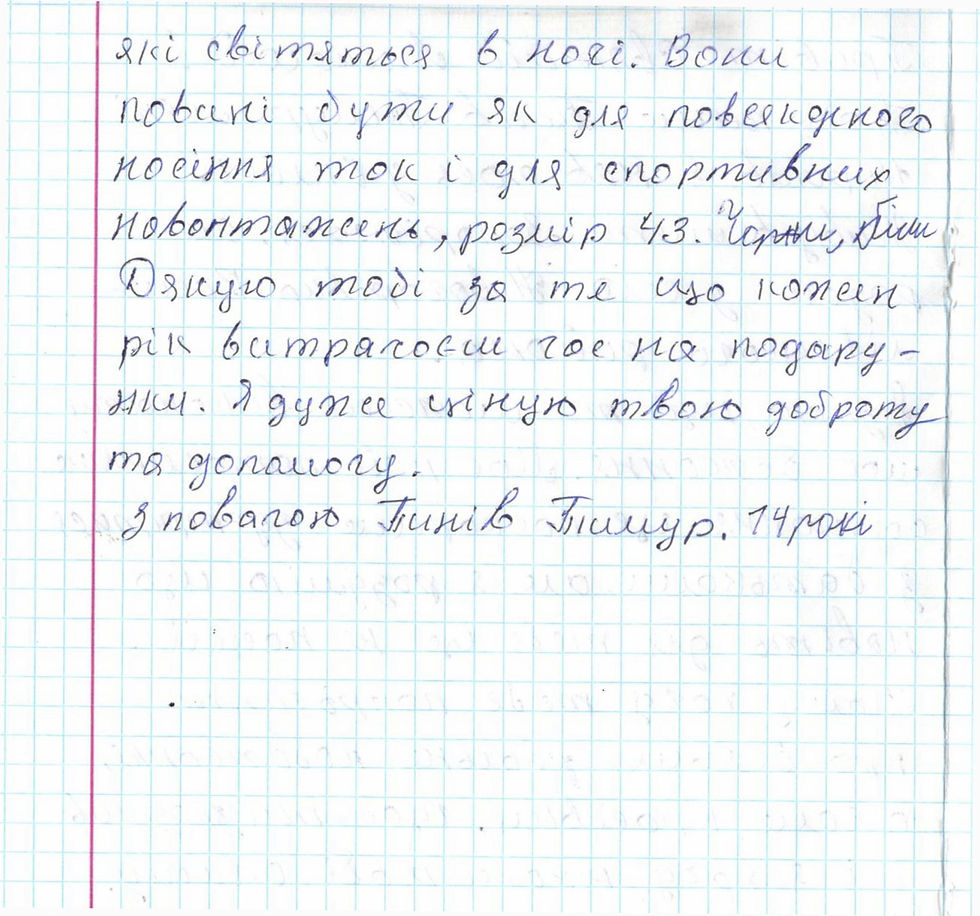 які світяться в ночі. Вони
повині бути як для повсякденого
носіння так і для спортивних
навонтажень, розмір 43. Чорни, біли
Дякую тобі за те що кожен
рік витрачаєш час на подару-
нки. Я дуже ціную твою доброту
та допомогу.
З повагою Тинів Тимур. 14 рокі